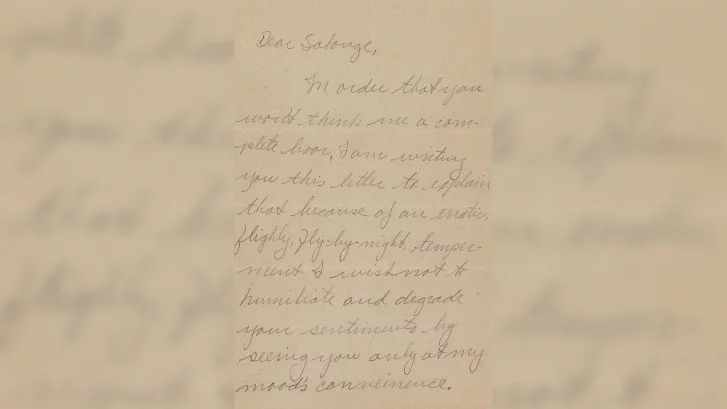 Dear Solange,
In order that you
won't think me a com-
plete boor, I am writing
you this letter to explain
that because of an erratic,
flighly, fly-by-night, temper-
ment I wish not to
humiliate and degrade
your sentiments by
seeing you only at my
mood's conveinence.